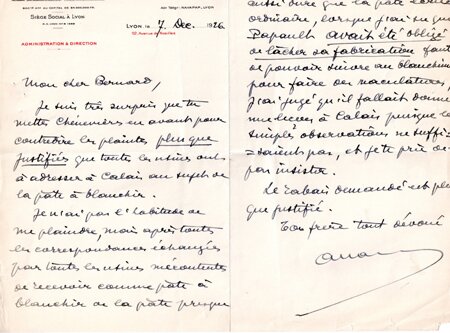 SIÈGE SOCIAL À LYON
LYON, le 7 Déc. 1926
52, Avenue de Noailles
ADMINISTRATION & DIRECTION
Mon cher Bernard,
Je suis très surpris que tu
mettes Chènemères en avant pour
contredire les plaintes plus que
justifiées que toutes les usines ont
à adresser à Calais au sujet de
la pâte à blanchir.
Je n'ai pas l'habitude de
me plaindre, mais après toutes
les correspondances échangées
par toutes les usines mécontentes
de recevoir comme pâte à
blanchir de la pâte presque
aussi dure que la pâte
ordinaire, lorsque j'ai su que
Papault avait été obligé
de lâcher sa fabrication faute
de pouvoir suivre au blanchiment
pour faire des maculatures,
j'ai jugé qu'il fallait donner
à Calais puisque les
simples observations ne suffi=
=saient pas, et je te prie de
pas insister.
Le rabais demandé est plus
que justifié.
Ton frère tout dévoué